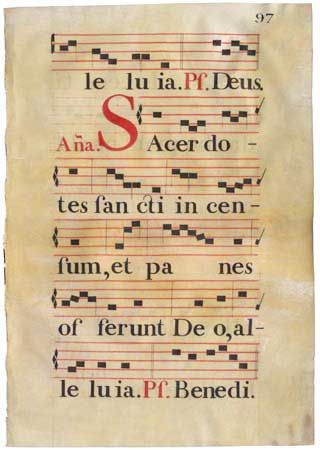 97
le lu ia. Ps. Deus.
Aña. SAcerdo-
tes ſancti in cen-
ſum, et pa nes
of ferunt De o, al-
le lu ia. Pſ. Benedi.